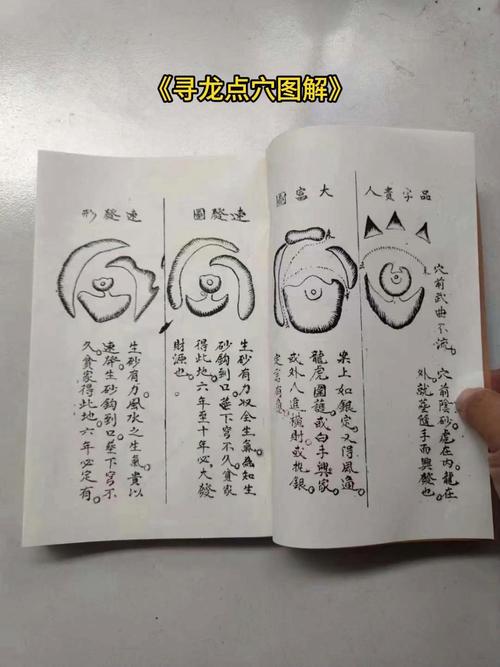 《寻龙点穴图解》
品字貴人
穴前武曲不流。
穴前陰砂虚在内龍在
外就葬隨手而興發也。
大富圖
案上如銀定又得風適
龍虎圍隨或白手興家
或外人進橫財或挖銀
定富有
速發圖
生砂有力收全生氣為知生
砂鈎到口葬下穷不久貧家
得此地六年至十年必大發
財源也。
速發形
生砂有力風水之生氣貴以
速發生砂鈎到口葬下穷不
久貧家得此地六年必定有。